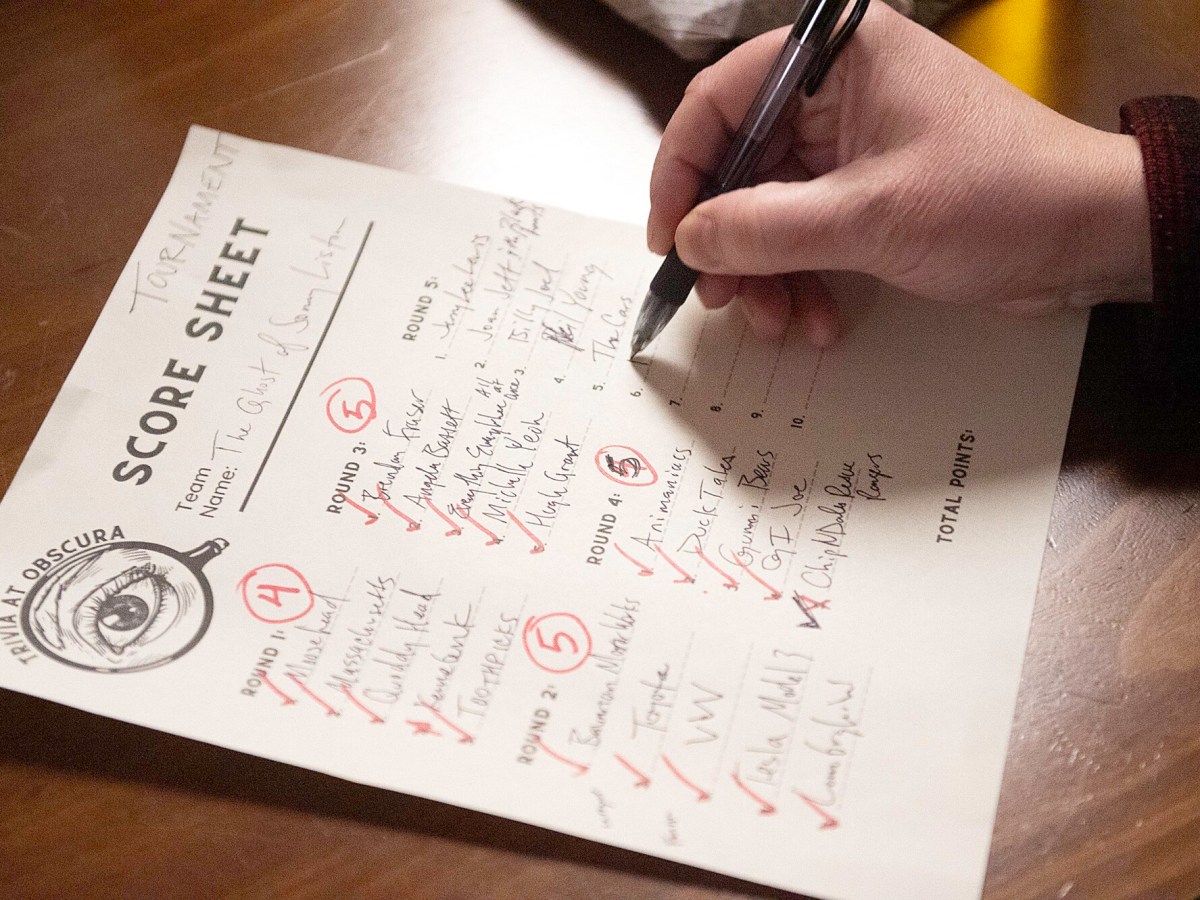 TOURNAMENT
SCORE SHEET
Team
Name: The Ghost of Sonny Liston
TRIVIA AT OBSCURA
ROUND 1: 4
Moosehead
Massachusetts
Quoddy Head
Kennebunk
TOOTHPICKS
ROUND 2: 5
Toyota
VW
Tesla Model 3
ROUND 3: 5
Brendan Fraser
Angela Bassett
Everything Everywhere All at once
Michelle Yeoh
Hugh Grant
ROUND 4: 5
Animaniacs
Duck Tales
Gummi Bears
GI Joe
Chip N Dale Rescue
Rangers
ROUND 5:
1. Jerry Lee Lewis
2. Joan Jett
3. Billy Joel
4. Neil Young
5. The Cars
6.
7.
8.
9.
10.
TOTAL POINTS: